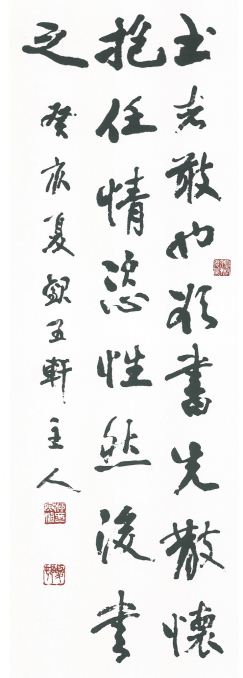 书者散也欲書先散懷
抱任情恣性然後书
之
癸亥夏五軒主人